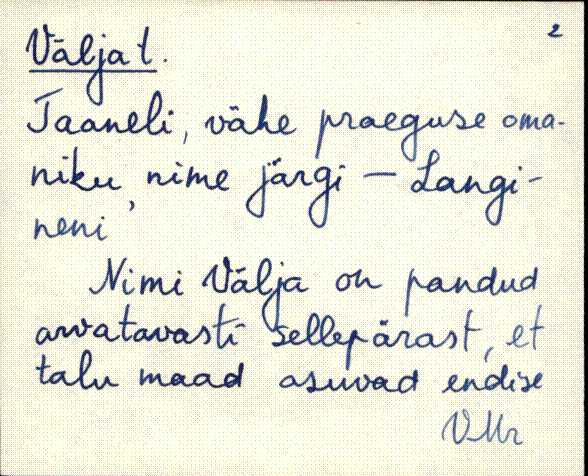 2
Välja t.
Jaaneli, vähe praeguse oma-
niku nime järgi – Langi-
neni
Nimi Välja on pandud
arvatavasti sellepärast, et
talu maad asuvad endise
VMr